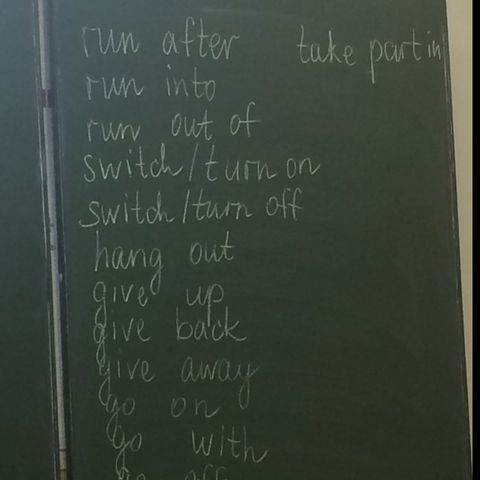 run after take part in
run into
run out of
switch/turn on
switch/turn off
hang out
give up
give back
give away
go on
go with
go off